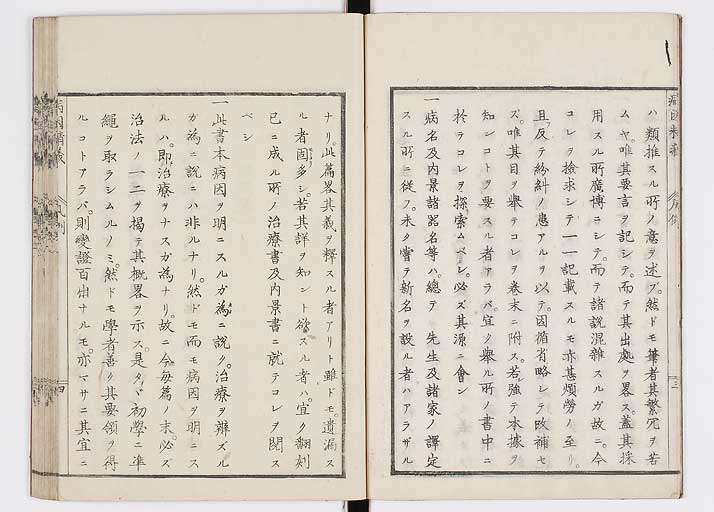 ハ類推スル所ノ意ヲ述ブ。然ドモ筆者其繁冗ヲ苦
ムヤ。唯其要言ヲ記シテ。而テ其出處ヲ畧ス。蓋其採
用スル所廣博ニシテ。而テ諸説混雜スルガ故ニ。今
コレヲ撿求シテ一一記載スルモ亦甚煩勞ノ至リ。
且反テ紛糾ノ患アルヲ以テ。因循省略シテ改補セ
ズ。唯其目ヲ擧テコレヲ卷末ニ附ス。若強テ本據ヲ
知ンコトヲ要スル者アラバ。宜ク擧ル所ノ書中ニ
於テコレヲ探索ムベシ。必ズ其源ニ會シ
一病名及内景諸器名等ハ。總テ 先生及諸家ノ譯定
スル所ニ從フ。未タ嘗テ新名ヲ設ル者ハアラザル
三
ナリ。此篇畧其義ヲ釋スル者アリト雖ドモ。遺漏ス
ル者固多シ。若其詳ヲ知ント欲スル者ハ。宜ク翻刻
已ニ成ル所ノ治療書及内景書ニ就テコレヲ閲ス
ベシ
一此書本病因ヲ明ニスルガ為ニ説ク。治療ヲ辨ズル
ガ為ニ説ニハ非ルナリ。然ドモ而モ病因ヲ明ニス
ルハ。即治療ヲナスガ為ナリ。故ニ今毎篇ノ末。必ズ
治法ノ一二ヲ揭テ其概畧ヲ示ス。是タヾ初學ノ準
繩ヲ取ラシムルノミ。然ドモ學者善ク其要領ヲ得
ルコトアラバ。則變證百出ナルモ。亦マサニ其宜ニ
四